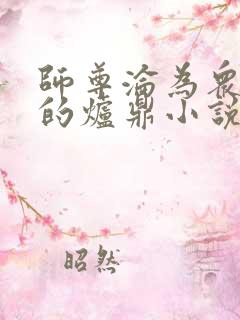 師尊淪為眾
的爐鼎小說
昭然